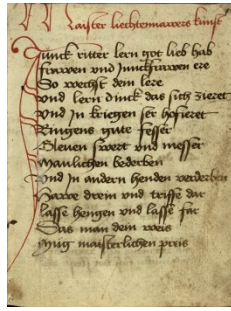 Maister liechtenawers kunst
Junck ritter lern got lieb hab
frawen vnd Junckfrawen ere
So wechst dein ere
vnd lern dinck das dich zieret
Vnd In kriegen ser hofieret
Ringens gute fesser
Gleuen swert vnd messer
Manlichen bederben
Vnd In andern henden verderben
Hawe drein vnd triffe dar
lasse hengen vnd lasse far
Das man dein weis
Mug maisterlichen preis